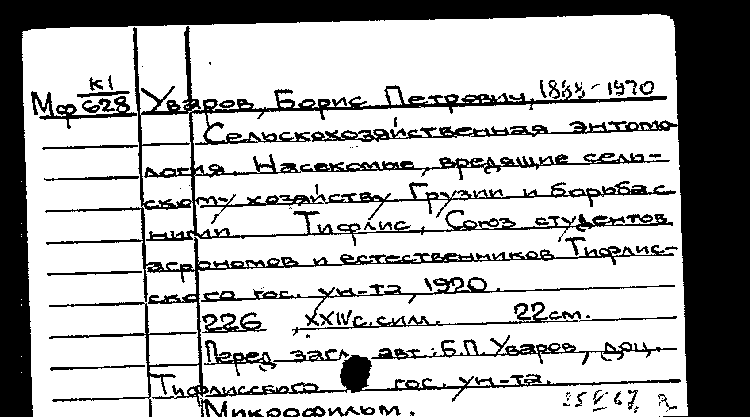 К1
Мф 628 Уваров, Борис Петрович, 1888-1970
Сельскохозяйственная энтомо-
логия. Насекомые, вредящие сель-
скому хозяйству Грузии и борьба с
ними. Тифлис, Союз студентов
агрономов и естественников Тифлис-
ского гос. ун-та, 1920.
226, XXIV с. илл. 22 см.
Перед загл. авт.: Б.П. Уваров, доц.
Тифлисского гос. ун-та.
Микрофильм.